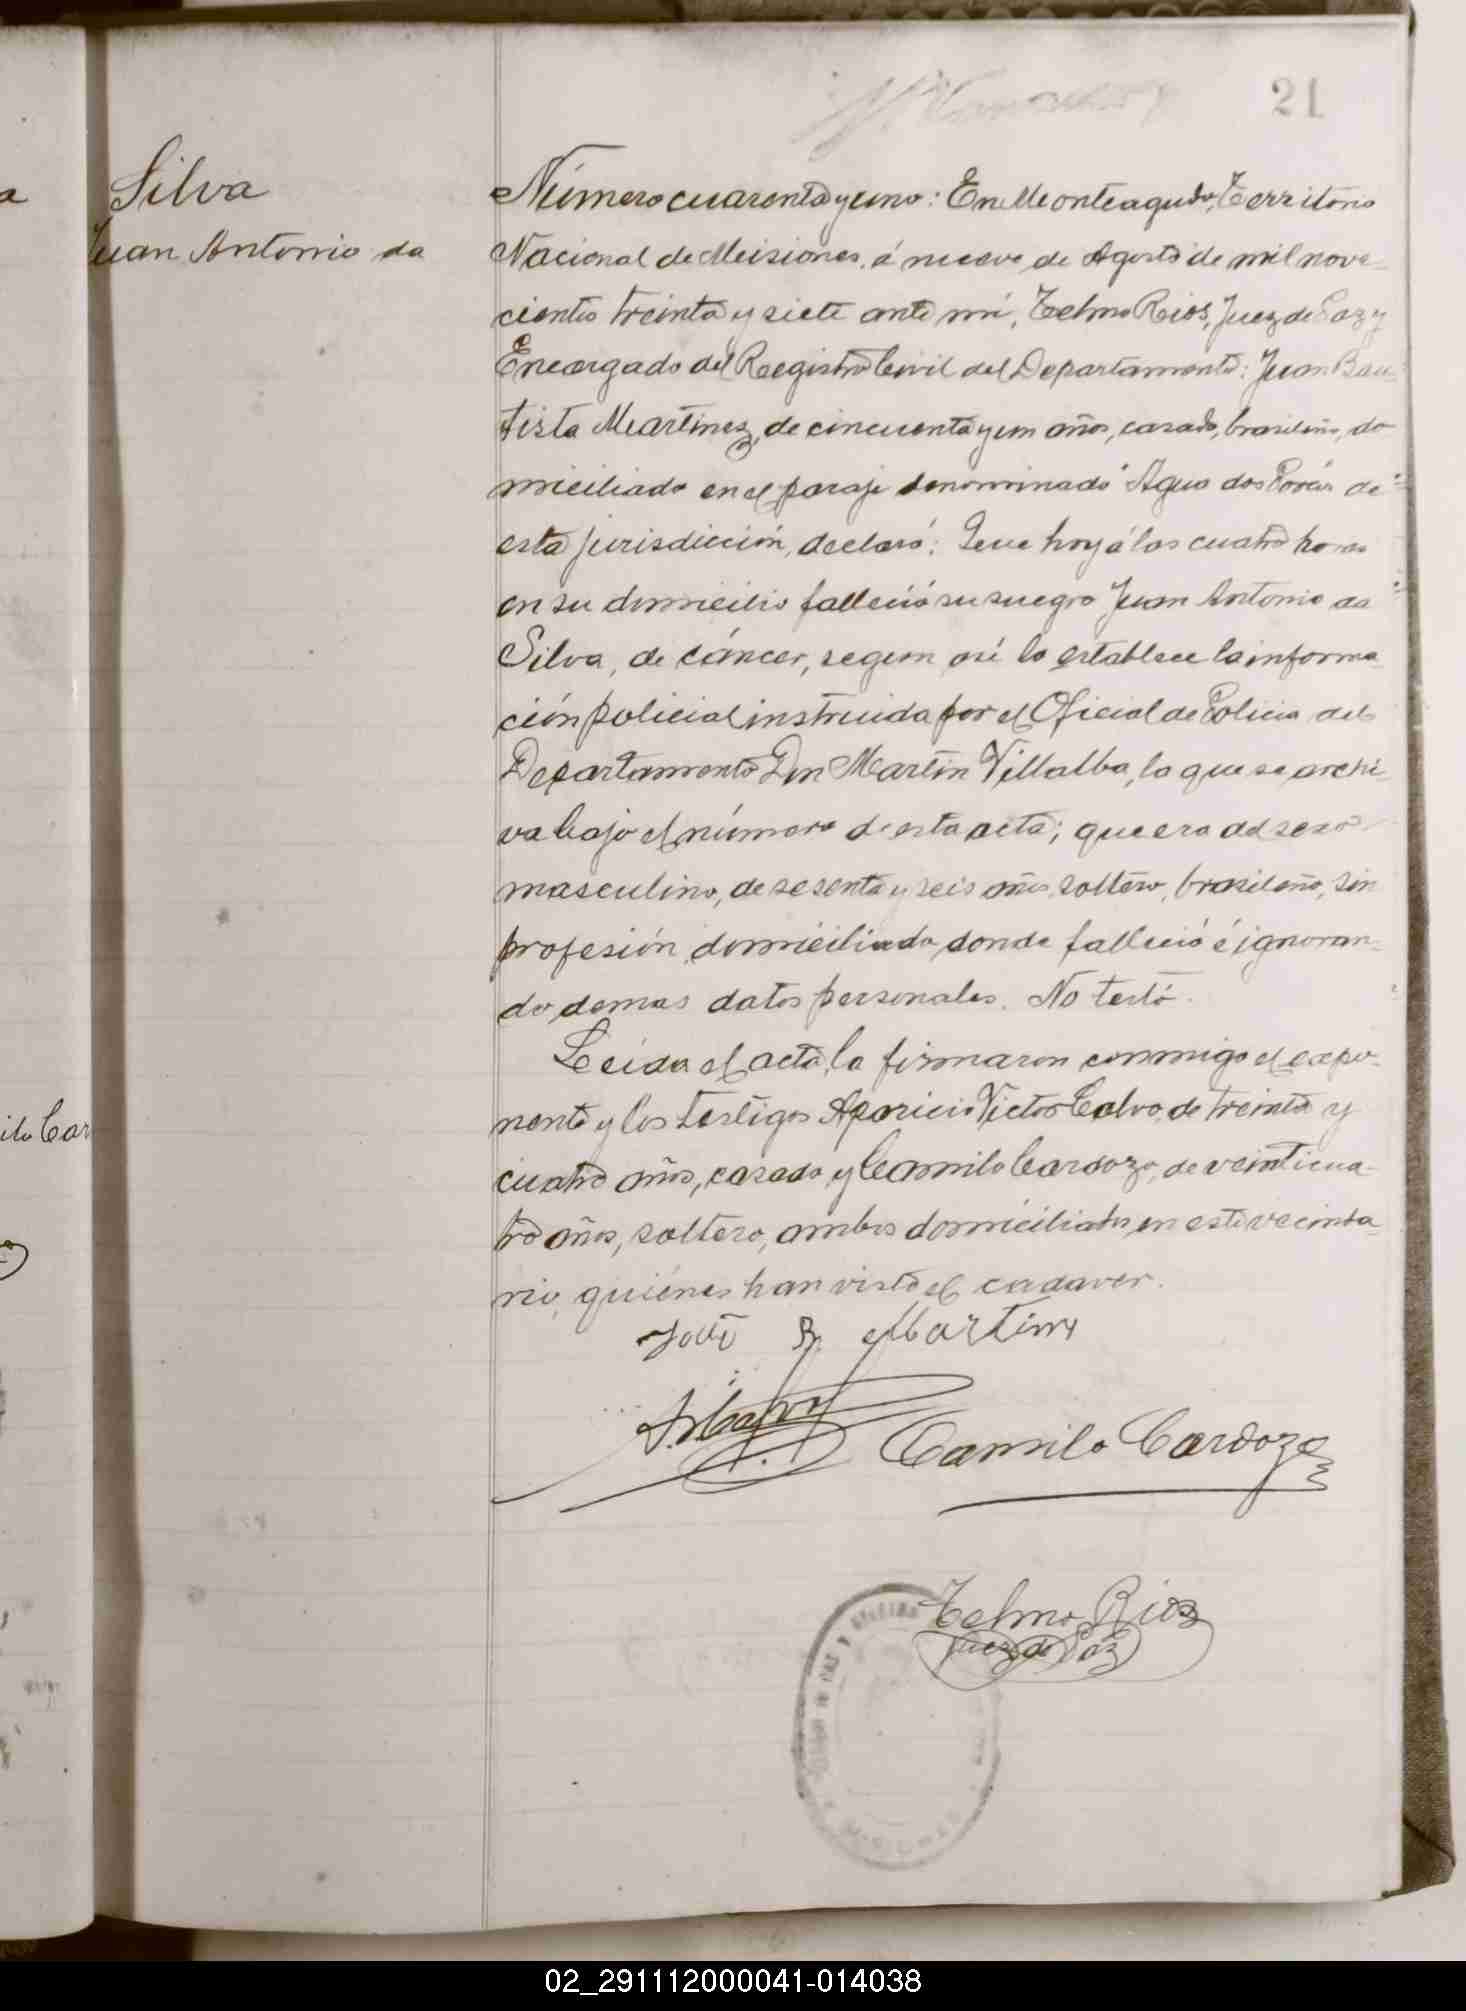 21
Silva
Juan Antonio da
Número cuarenta y uno: En Monteagudo, Territorio
Nacional de Misiones, á nueve de Agosto de mil nove-
cientos treinta y siete ante mí, Telmo Rios, Juez de Paz y
Encargado del Registro Civil del Departamento: Juan Bau-
tista Martinez, de cincuenta y un años, casado, brasileño, do
miciliado en el paraje denominado "Agua dos de
esta jurisdicción, declaró: Que hoy á las cuatro horas
en su domicilio falleció su suegro Juan Antonio da
Silva, de cáncer, segun así lo establece la informa-
ción policial instruida por el Oficial de Policia del
Departamento Don Martín Villalba, la que se archi-
va bajo el número de esta acta; que era del sexo
masculino, de sesenta y seis años, soltero, brasileño, sin
profesión, domiciliado donde falleció é ignoran-
do demas datos personales. No testó.
Leida el acta, la firmaron conmigo el expo-
nente y los testigos Aparicio Victor Calvo, de treinta y
cuatro años, casado y Camilo Cardozo, de veinticua-
tro años, soltero, ambos domiciliados en este vecinda-
rio, quiénes han visto el cadaver.
B. Martinz
Camilo Cardozo
Telmo Rios
Juez de Paz
ilo Car
02_291112000041-014038